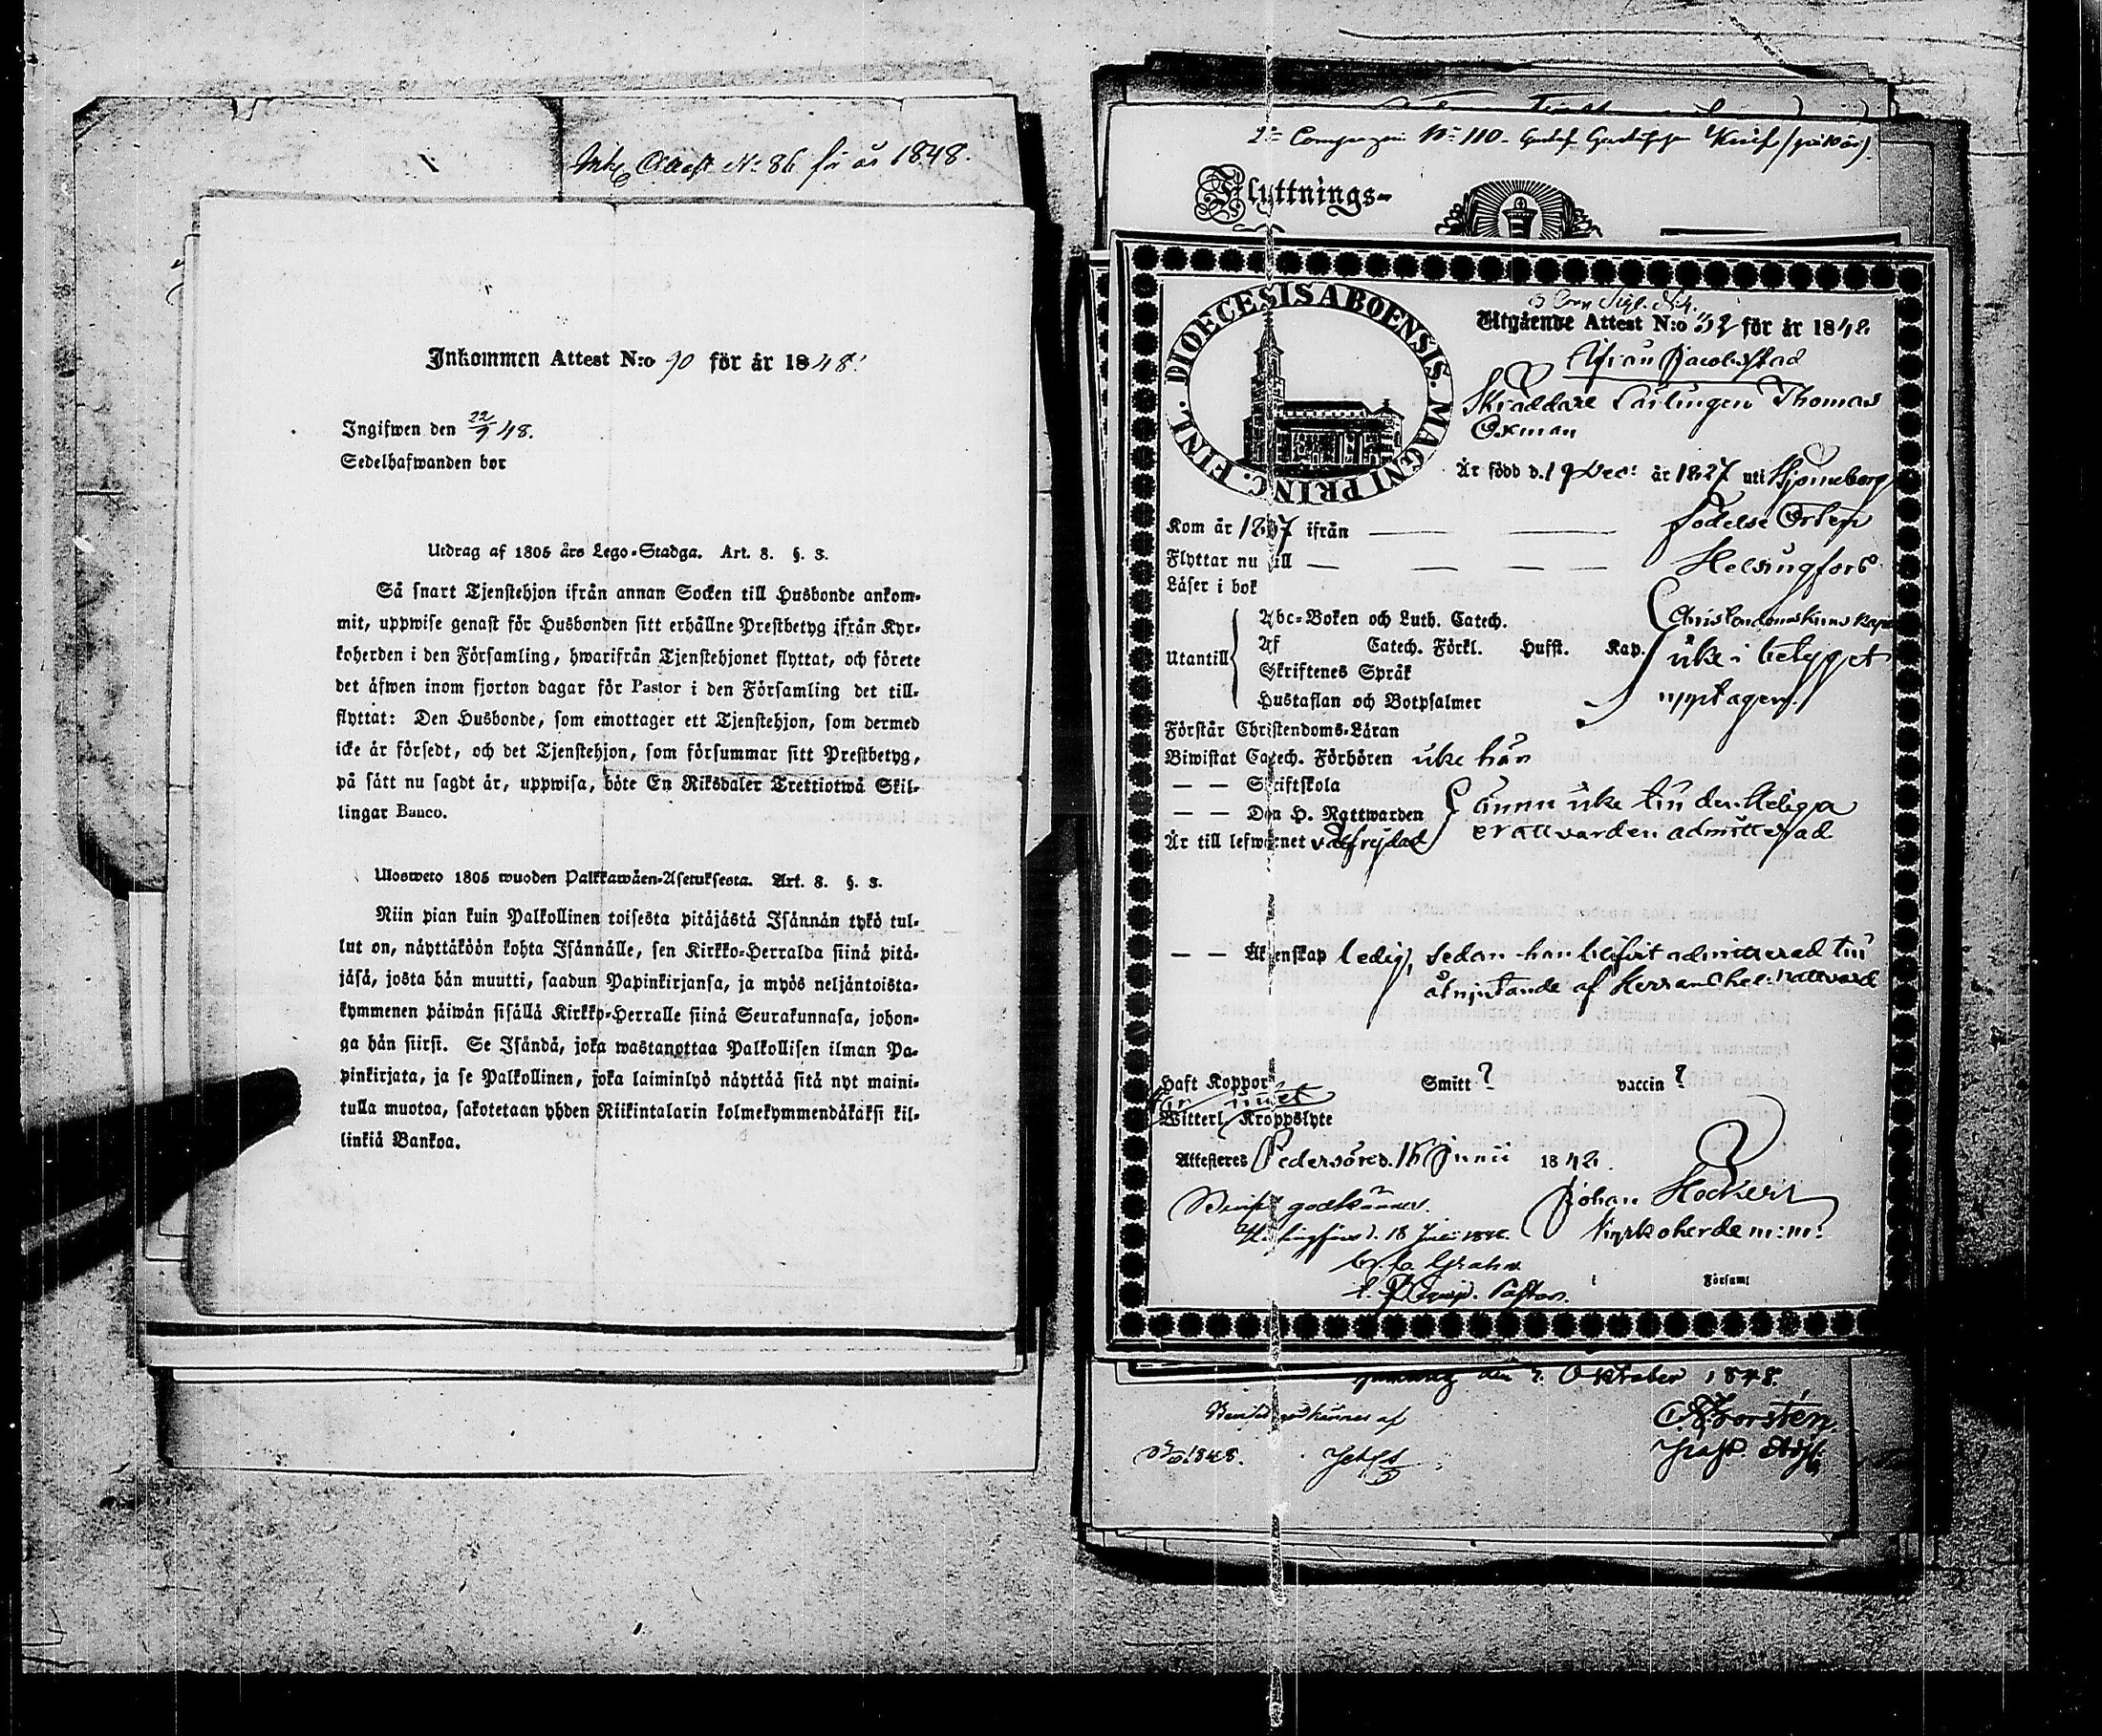 Attest No 86 för år 1848.
Inkommen Attest N:o 90 för år 1848.
Ingifwen den 22/9 48.
Sedelhafwanden bor
Utdrag af 1805 års Lego-Stadga. Art. 8. §. 3.
Så snart Tjenstehjon ifrån annan Socken till Husbonde ankom-
mit, uppwise genast för Husbonden sitt erhållne Prestbetyg ifrån Kyr-
koherden i den Församling, hwarifrån Tjenstehjonet flyttat, och förete
det äfwen inom fjorton dagar för Pastor i den Församling det till-
flyttat: Den Husbonde, som emottager ett Tjenstehjon, som dermed
icke är försedt, och det Tjenstehjon, som försummar sitt Prestbetyg,
på sätt nu sagdt är, uppwisa, böte En Riksdaler Trettiotwå Skil-
lingar Banco.
Ulosweto 1805 wuoden Palkkawäen-Asetuksesta. Art. 8. §. 3.
Niin pian kuin Palkollinen toisesta pitäjästä Isännän tykö tul-
lut on, näyttäköön kohta Isännälle, sen Kirkko-Herralda siinä pitä-
jäsä, josta hän muutti, saadun Papinkirjansa, ja myös neljäntoista-
kymmenen päiwän sisällä Kirkko-Herralle siinä Seurakunnasa, johon-
ga hän siirsi. Se Isändä, joka wastanottaa Palkollisen ilman Pa-
pinkirjata, ja se Palkollinen, joka laiminlyö näyttää sitä nyt maini-
tulla muotoa, sakotetaan yhden Riikintalarin kolmekymmendäkaksi kil-
linkiä Bankoa.
2:a Compagni No 110. Gustaf
Flyttnings-
DIOECESIS ABOENSIS. MAGNI PRINC. FINL.
Utgående Attest N:o 32 för år 1848
ifrån Jacobstad
Skräddare Lärlingen Thomas
Oxman
Är född d. 19 Dec: år 1827 uti Björneborg
Kom år 1837 ifrån — — — födelse Orten
Flyttar nu till — — — — Helsingfors
Läser i bok
Abc-Boken och Luth. Catech. Christendomskunskapen
Utantill Af Catech. Förkl. Hufst. Kap. icke i betyget
Skriftenes Språk
Hustaflan och Botpsalmer upptagen.
Förstår Christendoms-Läran
Biwistat Catech. Förhören icke här
— — Skriftskola
— — Den H. Nattwarden ännu icke till den Heliga
Är till lefwernet välfrejdad Nattvarden admitterad
— — Äktenskap ledig, sedan han blifvit admitterad till
åtnjutande af Herrans hel. nattvard
Haft Koppor Smitt ? vaccin ?
Witterl. Kroppslyte
Attesteres Pedersöre d. 16 Junii 1848.
Johan Hockert
Kyrkoherde m:m:
godkännes.
Helsingfors d. 18
Grahn
Pastor.
Församl
den 2. Oktober 1848.
godkännes af
1848.